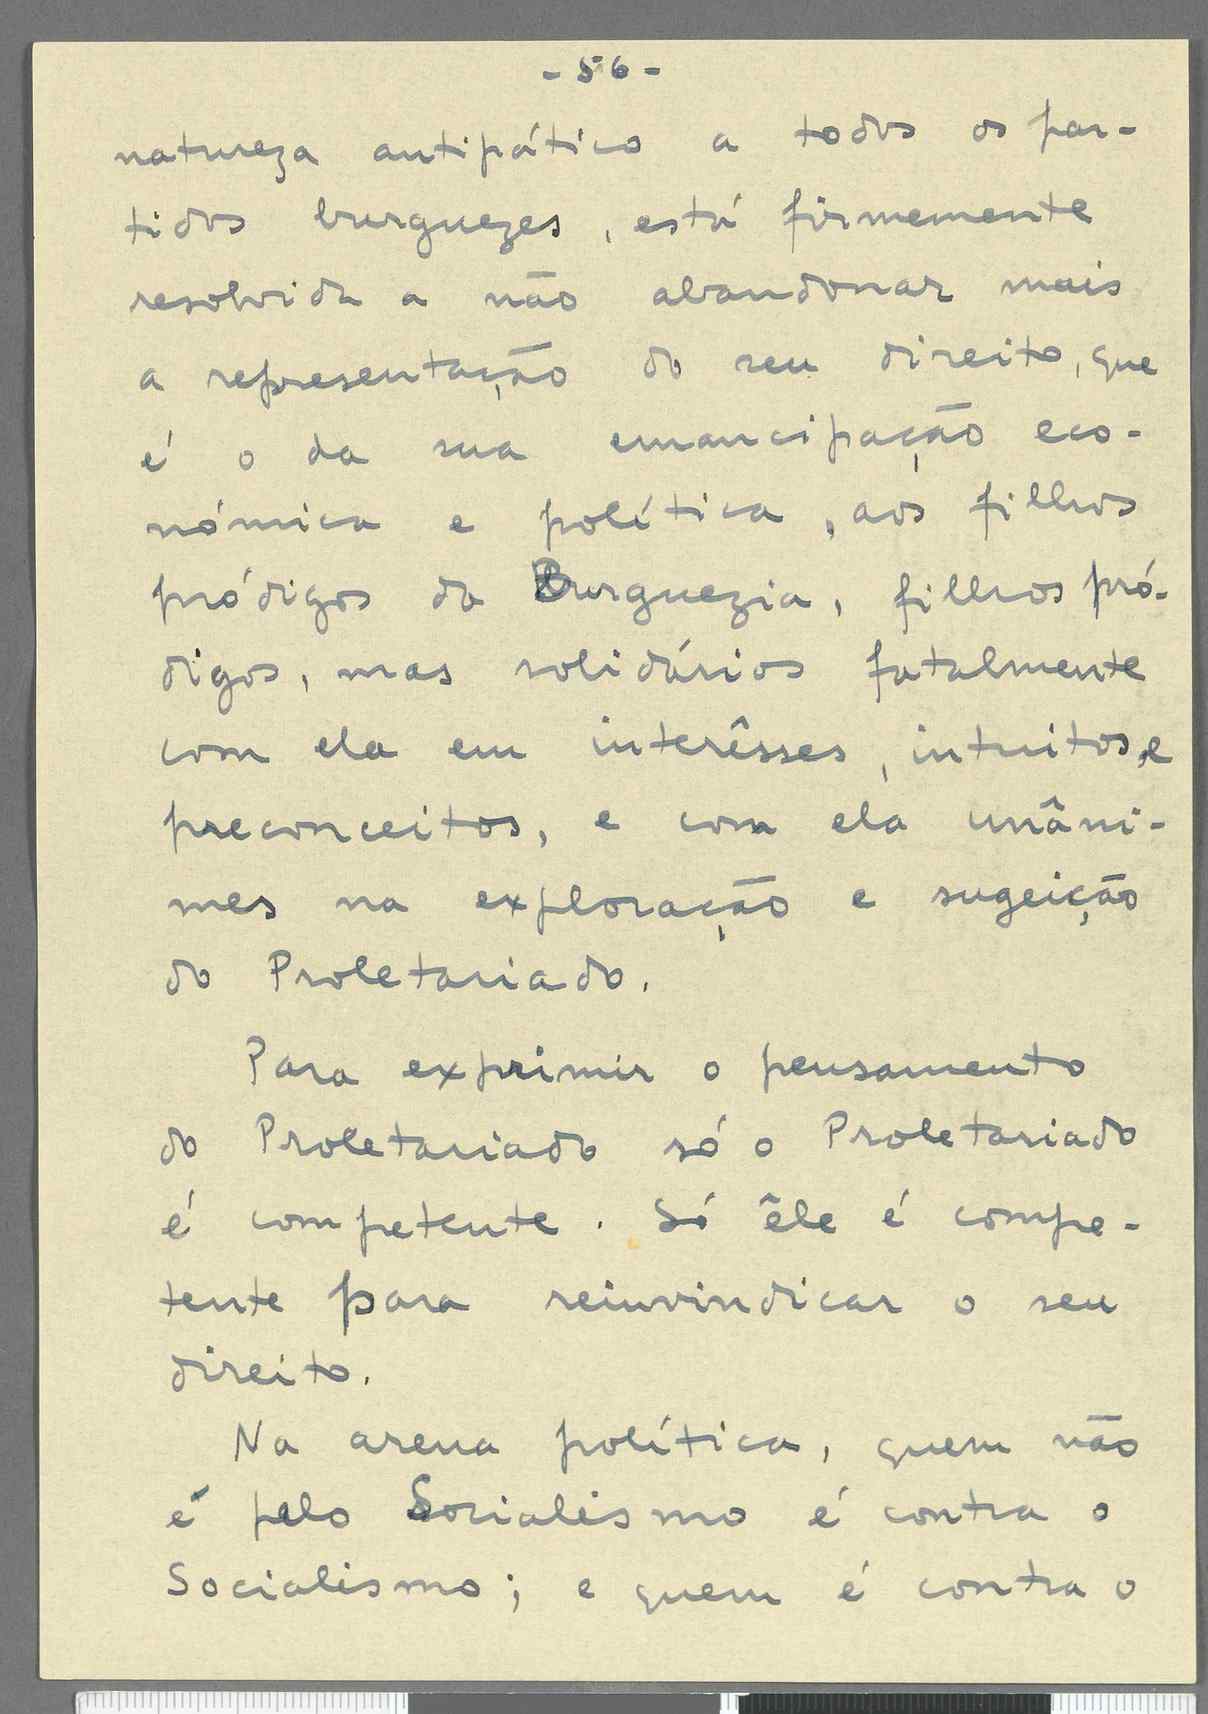 - 56 -
natureza antipático a todos os par-
tidos burguezes, está firmemente
resolvida a não abandonar mais
a representação do seu direito, que
é o da sua emancipação eco-
nómica e política, aos filhos
pródigos da Burguezia, filhos pró-
digos, mas solidários fatalmente
com ela em interêsses, intuitos, e
preconceitos, e com ela unâni-
mes na exploração e sugeição
do Proletariado.
Para exprimir o pensamento
do Proletariado só o Proletariado
é competente. Só êle é compe-
tente para reinvindicar o seu
direito.
Na arena política, quem não
é pelo Socialismo é contra o
Socialismo; e quem é contra o